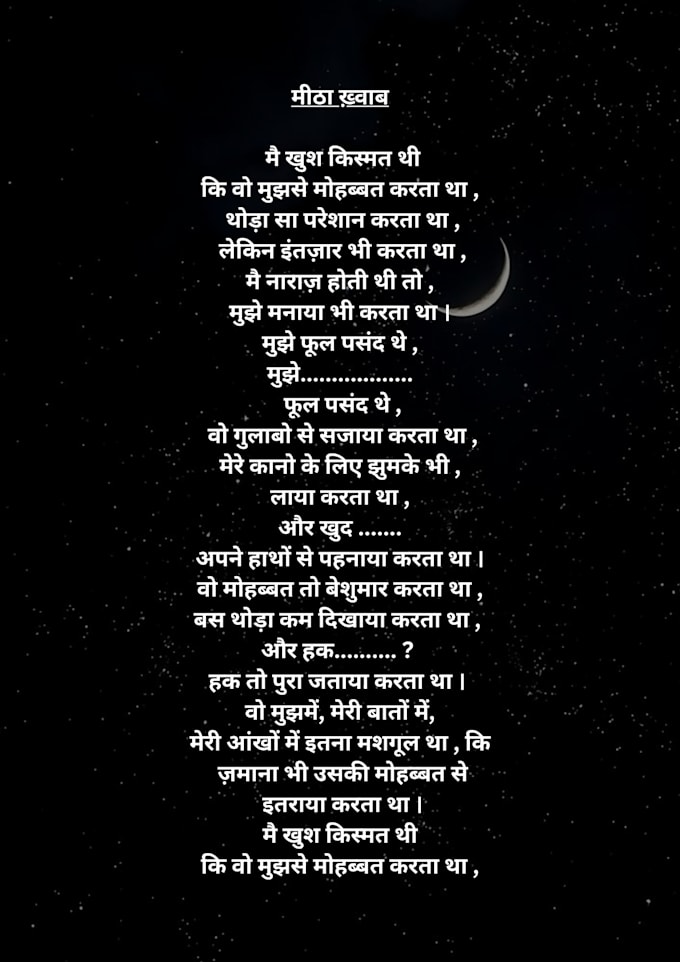 मीठा ख़्वाब
मै खुश किस्मत थी
कि वो मुझसे मोहब्बत करता था ,
थोड़ा सा परेशान करता था ,
लेकिन इंतज़ार भी करता था ,
मै नाराज़ होती थी तो ,
मुझे मनाया भी करता था ।
मुझे फूल पसंद थे ,
मुझे..................
फूल पसंद थे ,
वो गुलाबो से सजाया करता था ,
मेरे कानो के लिए झुमके भी ,
लाया करता था ,
और खुद .......
अपने हाथों से पहनाया करता था ।
वो मोहब्बत तो बेशुमार करता था ,
बस थोड़ा कम दिखाया करता था ,
और हक.......... ?
हक तो पुरा जताया करता था ।
वो मुझमें, मेरी बातों में,
मेरी आंखों में इतना मशगूल था , कि
ज़माना भी उसकी मोहब्बत से
इतराया करता था ।
मै खुश किस्मत थी
कि वो मुझसे मोहब्बत करता था ,